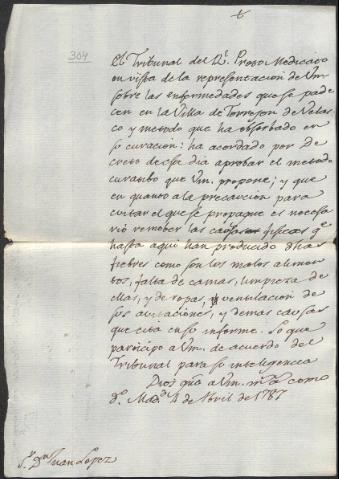 304
El Tribunal del Rl. Proto Medicato
en vista de la representacion de Vm
sobre las enfermedades que se pade
cen en la Villa de Torrejon de Velas
co y metodo que ha observado en
su curacion: ha acordado por de
creto de este dia aprobar el metodo
curativo que Vm. propone; y que
en quanto a la precaucion para
evitar el que se propague es necesa
rio remober las causas fisicas qe.
hasta aqui han producido dhas
fiebres como son los malos alimen
tos, falta de camas, limpieza de
ellas, y de ropas, ventilacion de
sus avitaciones, y demas causas
que cita en su informe. Lo que
participo a Vm. de acuerdo del
Tribunal para su inteligencia
Dios gue. a Vm. ms. as. como
do. Madd. 4 de Abril de 1787
Sr. Dn. Juan Lopez